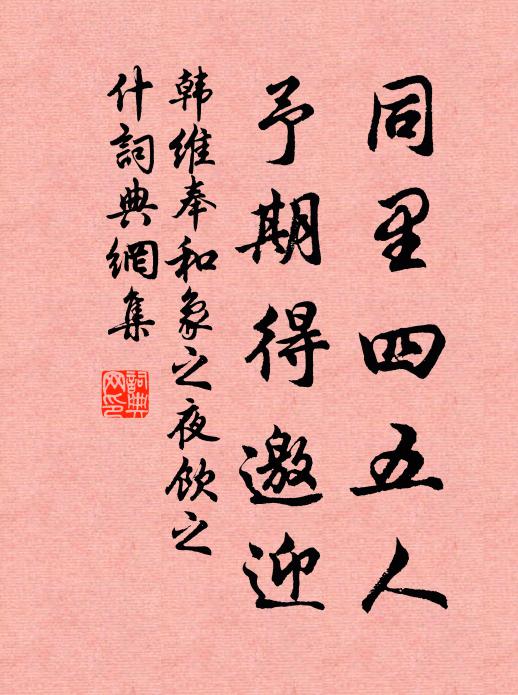 同里四五人
予期得邀迎
韩维奉和象之夜飲之
什詞典網集
詞典网印